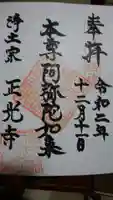 奉拝
令和二年
十二月十二日
本尊阿弥陀如来
浄土宗 正光寺